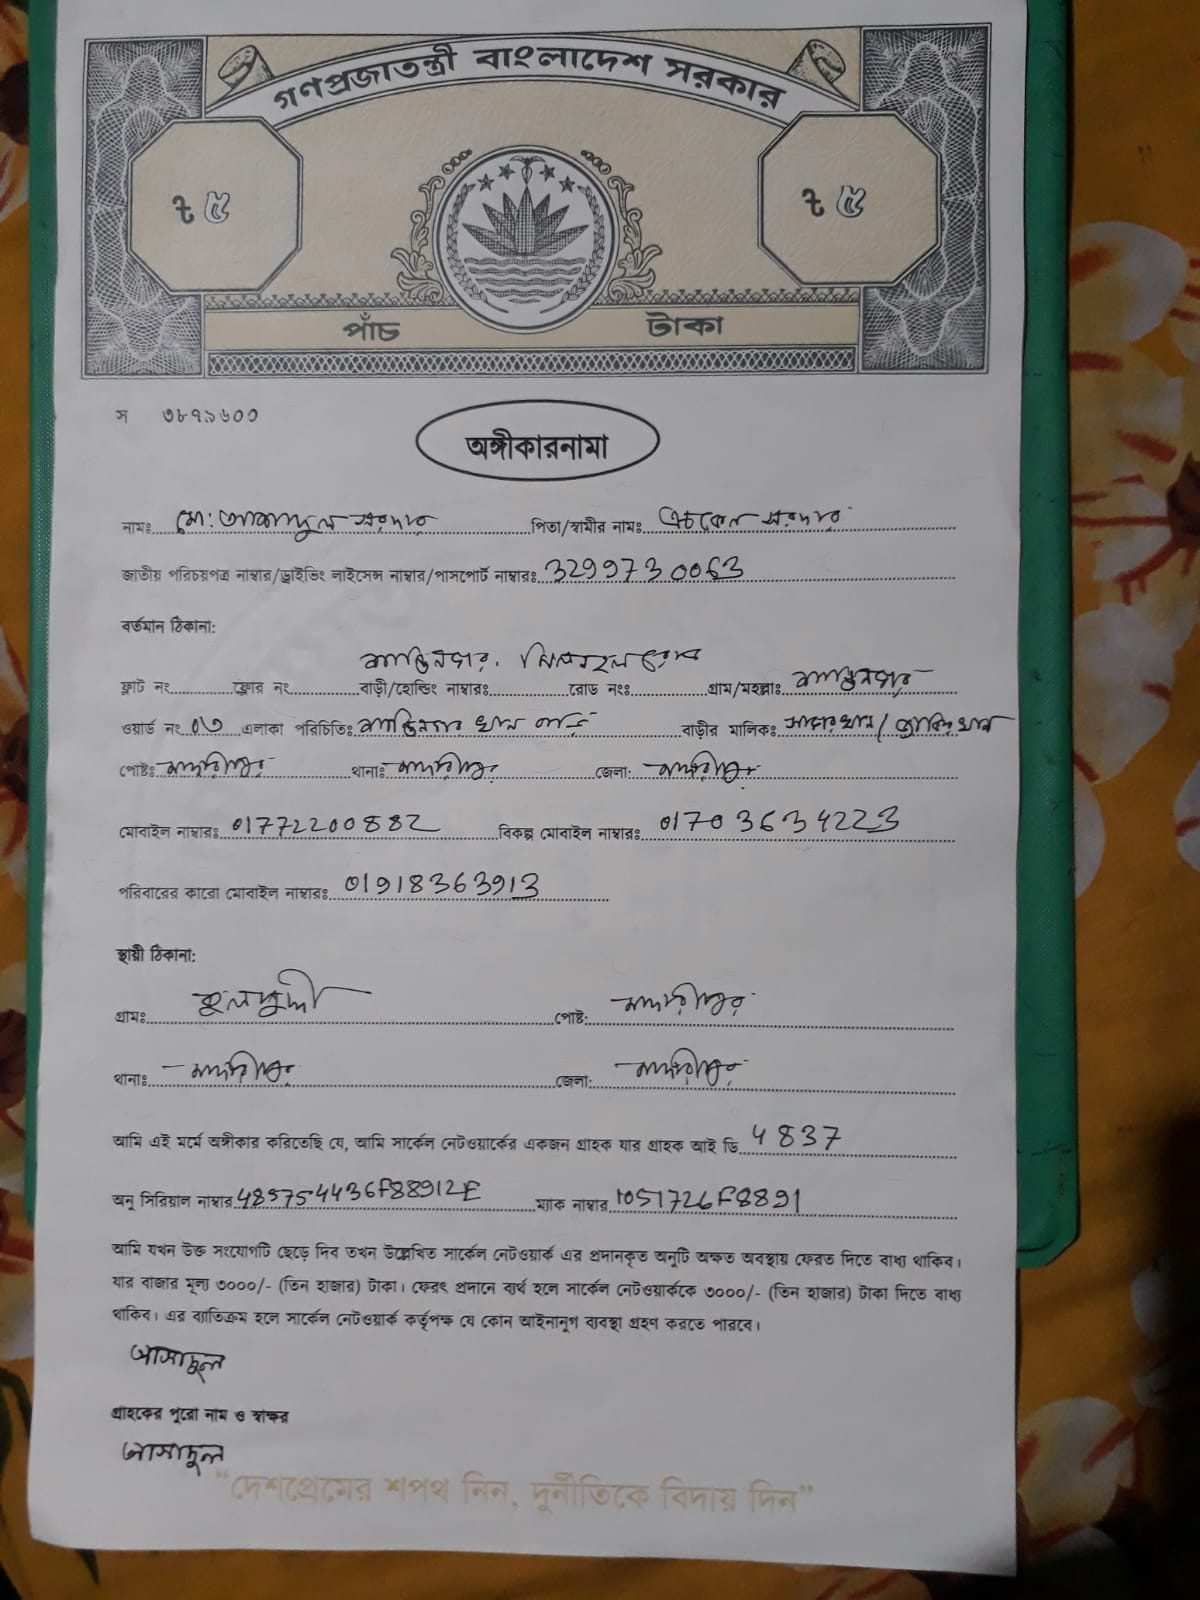 গণপ্রজাতন্ত্রী বাংলাদেশ সরকার
৳ ৫ ৳ ৫
পাঁচ টাকা
স ৩৮৭৯৬০০
অঙ্গীকারনামা
নামঃ মো: আসাদুল সরদার পিতা/স্বামীর নামঃ সরদার
জাতীয় পরিচয়পত্র নাম্বার/ড্রাইভিং লাইসেন্স নাম্বার/পাসপোর্ট নাম্বারঃ 3299730063
বর্তমান ঠিকানা:
ফ্লাট নং ফ্লোর নং বাড়ী/হোল্ডিং নাম্বারঃ রোড নংঃ গ্রাম/মহল্লাঃ
ওয়ার্ড নং ০৩ এলাকা পরিচিতিঃ খান বাড়ীর মালিকঃ খান/ খান
পোষ্টঃ মাদারীপুর থানাঃ মাদারীপুর জেলা: মাদারীপুর
মোবাইল নাম্বারঃ 01772200882 বিকল্প মোবাইল নাম্বারঃ 01703634223
পরিবারের কারো মোবাইল নাম্বারঃ 01918363913
স্থায়ী ঠিকানা:
গ্রামঃ কুলপদ্দী পোষ্ট: মাদারীপুর
থানাঃ মাদারীপুর জেলা: মাদারীপুর
আমি এই মর্মে অঙ্গীকার করিতেছি যে, আমি সার্কেল নেটওয়ার্কের একজন গ্রাহক যার গ্রাহক আই ডি 4837
অনু সিরিয়াল নাম্বার 485754436F88912E ম্যাক নাম্বার 1051726F8891
আমি যখন উক্ত সংযোগটি ছেড়ে দিব তখন উল্লেখিত সার্কেল নেটওয়ার্ক এর প্রদানকৃত অনুটি অক্ষত অবস্থায় ফেরত দিতে বাধ্য থাকিব।
যার বাজার মূল্য ৩০০০/- (তিন হাজার) টাকা। ফেরৎ প্রদানে ব্যর্থ হলে সার্কেল নেটওয়ার্ককে ৩০০০/- (তিন হাজার) টাকা দিতে বাধ্য
থাকিব। এর ব্যতিক্রম হলে সার্কেল নেটওয়ার্ক কর্তৃপক্ষ যে কোন আইনানুগ ব্যবস্থা গ্রহণ করতে পারবে।
আসাদুল
গ্রাহকের পুরো নাম ও স্বাক্ষর
আসাদুল
“দেশপ্রেমের শপথ নিন, দুর্নীতিকে বিদায় দিন”